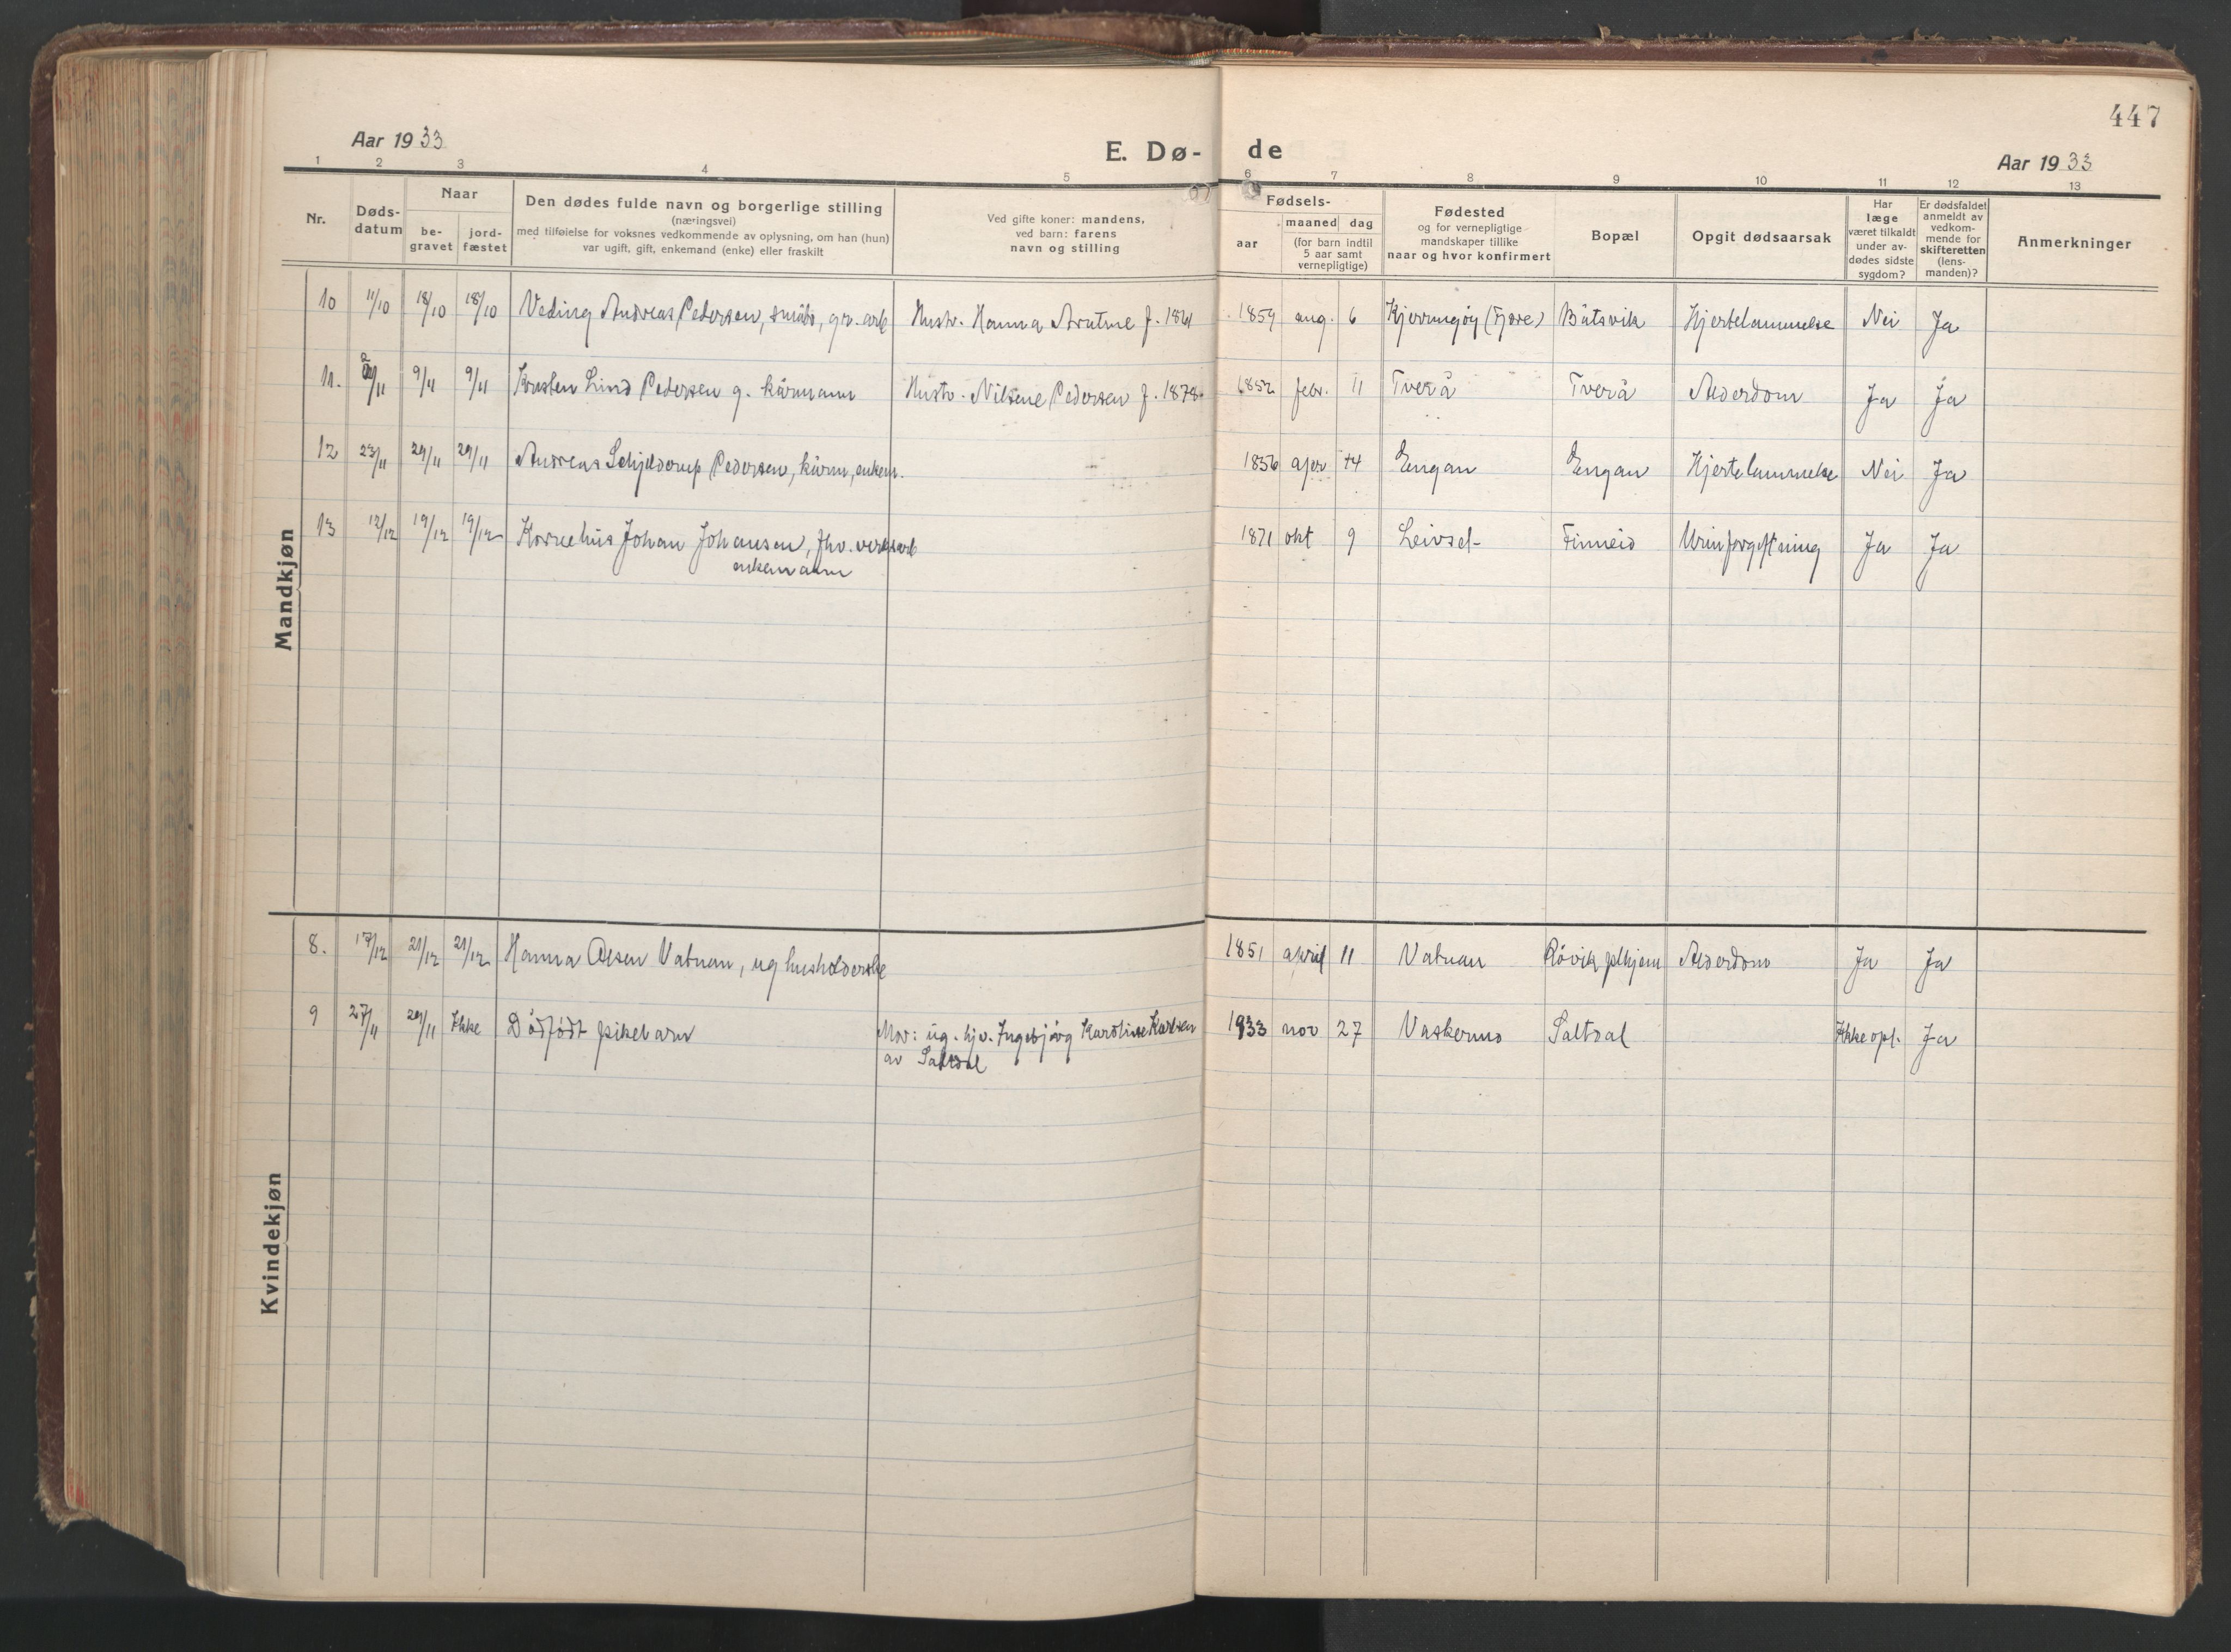 447
Aar 1933
E. Dø-
de
Aar 1933
1 2 3 4 5 6 7 8 9 10 11 12 13
Nr.
Døds-
datum
Naar
be-
gravet
jord-
fæstet
Den dødes fulde navn og borgerlige stilling
(næringsvei)
med tilføielse for voksnes vedkommende av oplysning, om han (hun)
var ugift, gift, enkemand (enke) eller fraskilt
Ved gifte koner: mandens,
ved barn: farens
navn og stilling
Fødsels-
aar
maaned dag
(for barn indtil
5 aar samt
vernepligtige)
Fødested
og for vernepligtige
mandskaper tillike
naar og hvor konfirmert
Bopæl
Opgit dødsaarsak
Har
læge
været tilkaldt
under av-
dødes sidste
sygdom?
Er dødsfaldet
anmeldt av
vedkom-
mende for
skifteretten
(lens-
manden)?
Anmerkninger
Mandkjøn
10 11/10 18/10 18/10 Veding Andreas Pedersen, småbr, gr. arb Hustr. Hanna f. 1861 1859 aug. 6 Kjerringøy (Fjære) Båtsvik Hjertelammelse Nei Ja
11. 9/11 9/11 Kristen Lind Pedersen g. kårmann Hustr. Nilsine Pedersen f. 1878 1852 febr. 11 Tverå Tverå Alderdom Ja Ja
12 23/11 29/11 29/11 Andreas Schjelderup Pedersen, kårm, enkem. 1856 apr 14 Engan Engan Hjertelammelse Nei Ja
13 12/12 19/12 19/12 Kornelius Johan Johansen, fhv. verksarb
enkemann
1871 okt 9 Leivset Finneid Urinforgiftning Ja Ja
Kvindekjøn
8. 17/12 21/12 21/12 Hanna Olsen Vatnan, ug husholderske 1851 april 11 Vatnan Røvik plhjem Alderdom Ja Ja
9 27/11 29/11 Ikke Dødfødt pikebarn Mor: ug. hjv. Ingebjørg Karoline Karlsen
av Saltdal
1933 nov 27 Vaskermo Saltdal Ikke opl. Ja